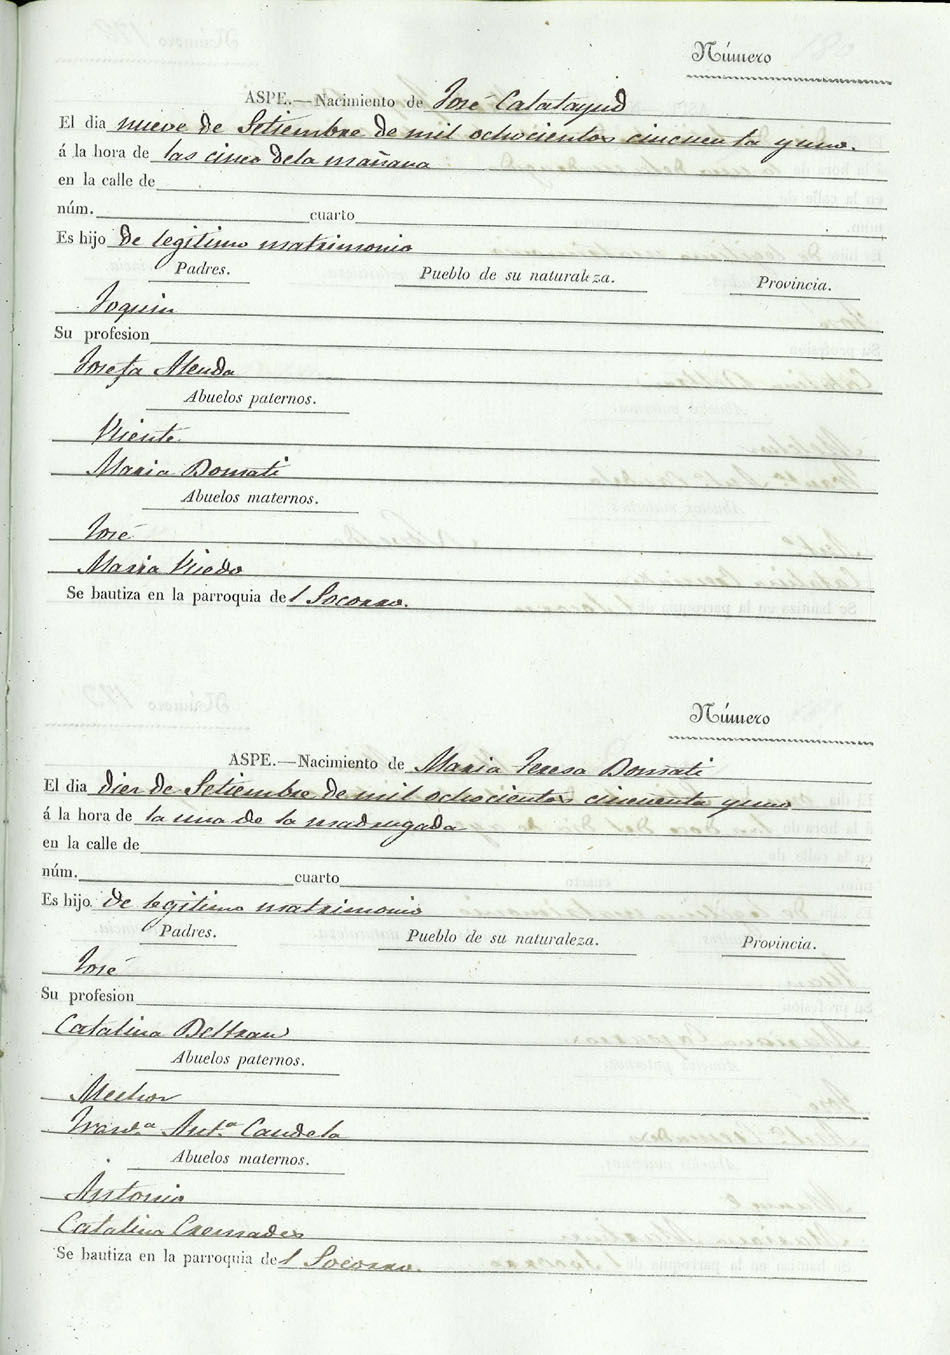 Número
ASPE.—Nacimiento de José Calatayud
El dia nueve de Setiembre de mil ochocientos cincuenta y uno.
á la hora de las cinco dela mañana
en la calle de
núm. cuarto
Es hijo de legitimo matrimonio
Padres. Pueblo de su naturaleza. Provincia.
Joquin
Su profesion
Josefa Alenda
Abuelos paternos.
Vicente
Maria Bonmati
Abuelos maternos.
José
Maria
Se bautiza en la parroquia del Socorro.
Número
ASPE.—Nacimiento de Maria Teresa Bonmati
El dia diez de Setiembre de mil ochocientos cincuenta y uno
á la hora de la una de la madrugada
en la calle de
núm. cuarto
Es hijo de legitimo matrimonio
Padres. Pueblo de su naturaleza. Provincia.
José
Su profesion
Catalina Beltran
Abuelos paternos.
Melchor
Antª Candela
Abuelos maternos.
Antonio
Catalina Cremades
Se bautiza en la parroquia del Socorro.